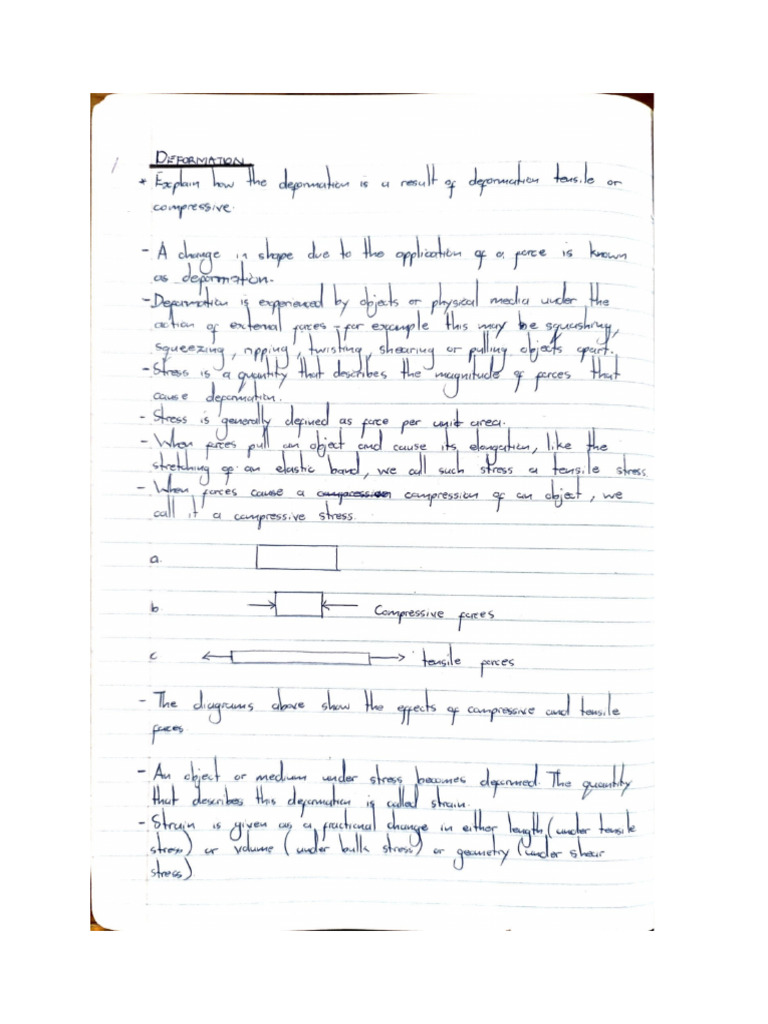 DEFORMATION
* Explain how the deformation is a result of deformation tensile or
compressive.
- A change in shape due to the application of a force is known
as deformation.
- Deformation is experienced by objects or physical media under the
action of external forces - for example this may be squashing,
squeezing, ripping, twisting, shearing or pulling objects apart.
- Stress is a quantity that describes the magnitude of forces that
cause deformation.
- Stress is generally defined as force per unit area.
- When forces pull an object and cause its elongation, like the
stretching of an elastic band, we call such stress a tensile stress.
- When forces cause a compression of an object, we
call it a compressive stress.
a.
b Compressive forces
c tensile forces
- The diagrams above show the effects of compressive and tensile
forces
- An object or medium under stress becomes deformed. The quantity
that describes this deformation is called strain.
- Strain is given as a fractional change in either length (under tensile
stress) or volume (under bulk stress) or geometry (under shear
stress)